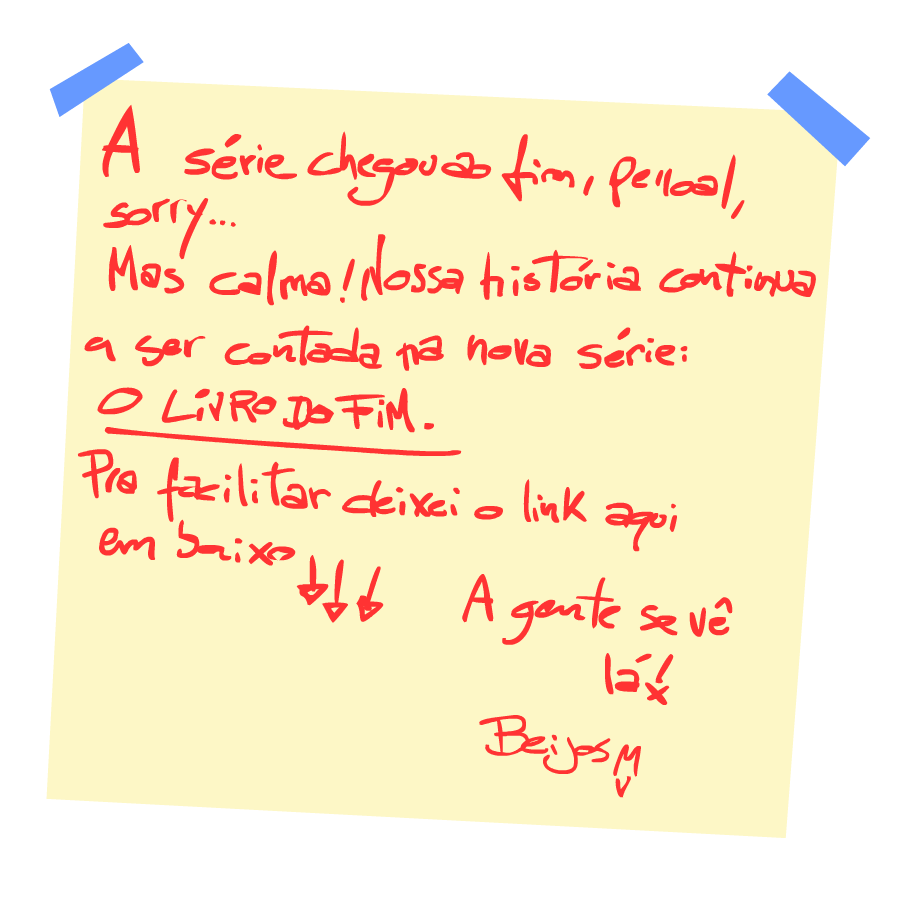 A série chegou ao fim, pessoal,
sorry...
Mas calma! Nossa história continua
a ser contada na nova série:
O LIVRO DO FIM.
Pra facilitar deixei o link aqui
em baixo ↓↓↓
A gente se vê
lá!
Beijos